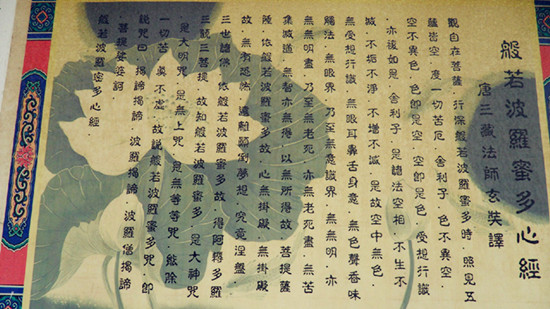 般若波羅蜜多心經
唐三藏法師玄奘譯
觀自在菩薩．行深般若波羅蜜多時．照見五
蘊皆空．度一切苦厄．舍利子．色不異空．
空不異色．色即是空．空即是色．受想行識
．亦復如是．舍利子．是諸法空相．不生不
滅．不垢不淨．不增不減．是故空中無色．
無受想行識．無眼耳鼻舌身意．無色聲香味
觸法．無眼界．乃至無意識界．無無明．亦
無無明盡．乃至無老死．亦無老死盡．無苦
集滅道．無智亦無得．以無所得故．菩提薩
陲．依般若波羅蜜多故．心無掛礙．無掛礙
故．無有恐怖．遠離顛倒夢想．究竟涅槃．
三世諸佛．依般若波羅蜜多故．得阿耨多羅
三藐三菩提．故知般若波羅蜜多．是大神咒
．是大明咒．是無上咒．是無等等咒．能除
一切苦．真實不虛．故說般若波羅蜜多咒．即
說咒曰．揭諦揭諦．波羅揭諦．波羅僧揭諦
．菩提娑婆訶
般若波羅蜜多心經